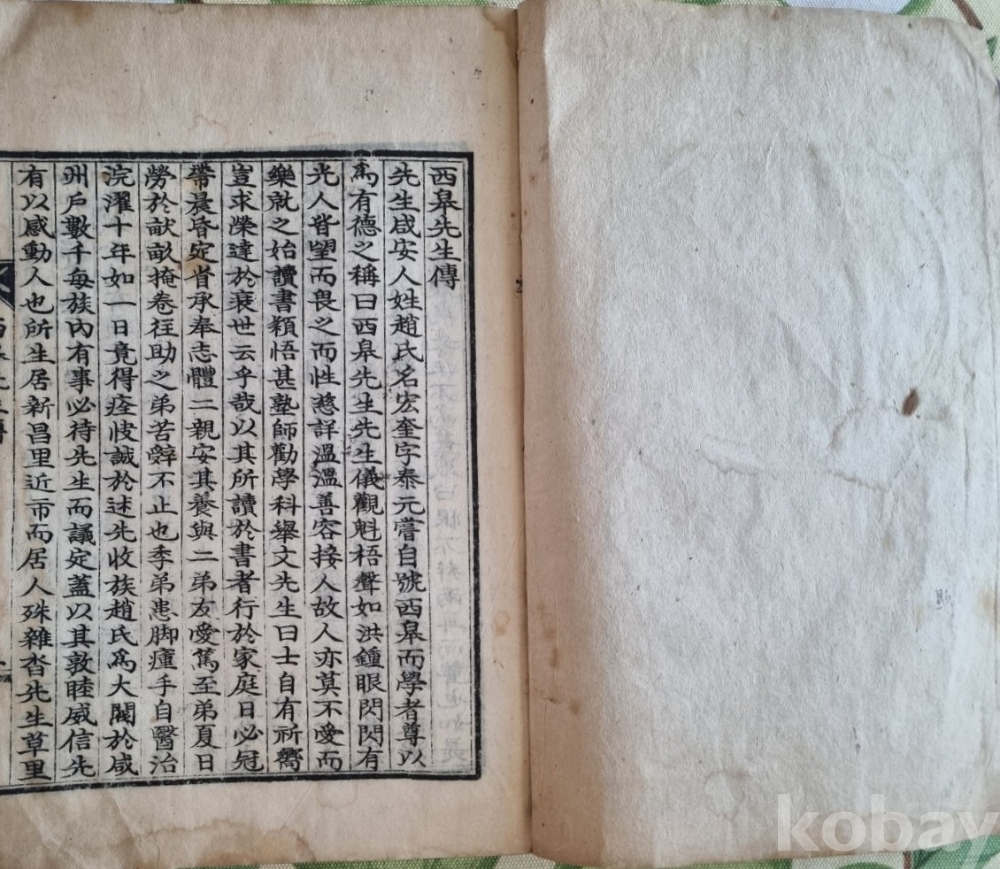 西皋先生傳
先生咸安人姓趙氏名宏奎字泰元嘗自號西皋而學者尊以
爲有德之稱曰西皋先生先生儀觀魁梧聲如洪鍾眼閃閃有
光人皆望而畏之而性慈詳溫溫善容接人故人亦莫不愛而
樂就之始讀書穎悟甚塾師勸學科舉文先生曰士自有所嚮
豈求榮達於衰世云乎哉以其所讀於書者行於家庭日必冠
帶晨昏定省承奉志體二親安其養與二弟友愛篤至弟夏日
勞於畎畝掩卷往助之弟苦辭不止也季弟患脚瘇手自醫治
浣濯十年如一日竟得痊恔誠於述先收族趙氏爲大閥於咸
州戶數千每族內有事必待先生而議定蓋以其敦睦威信先
有以感動人也所生居新昌里近市而居人殊雜沓先生草里
kobay